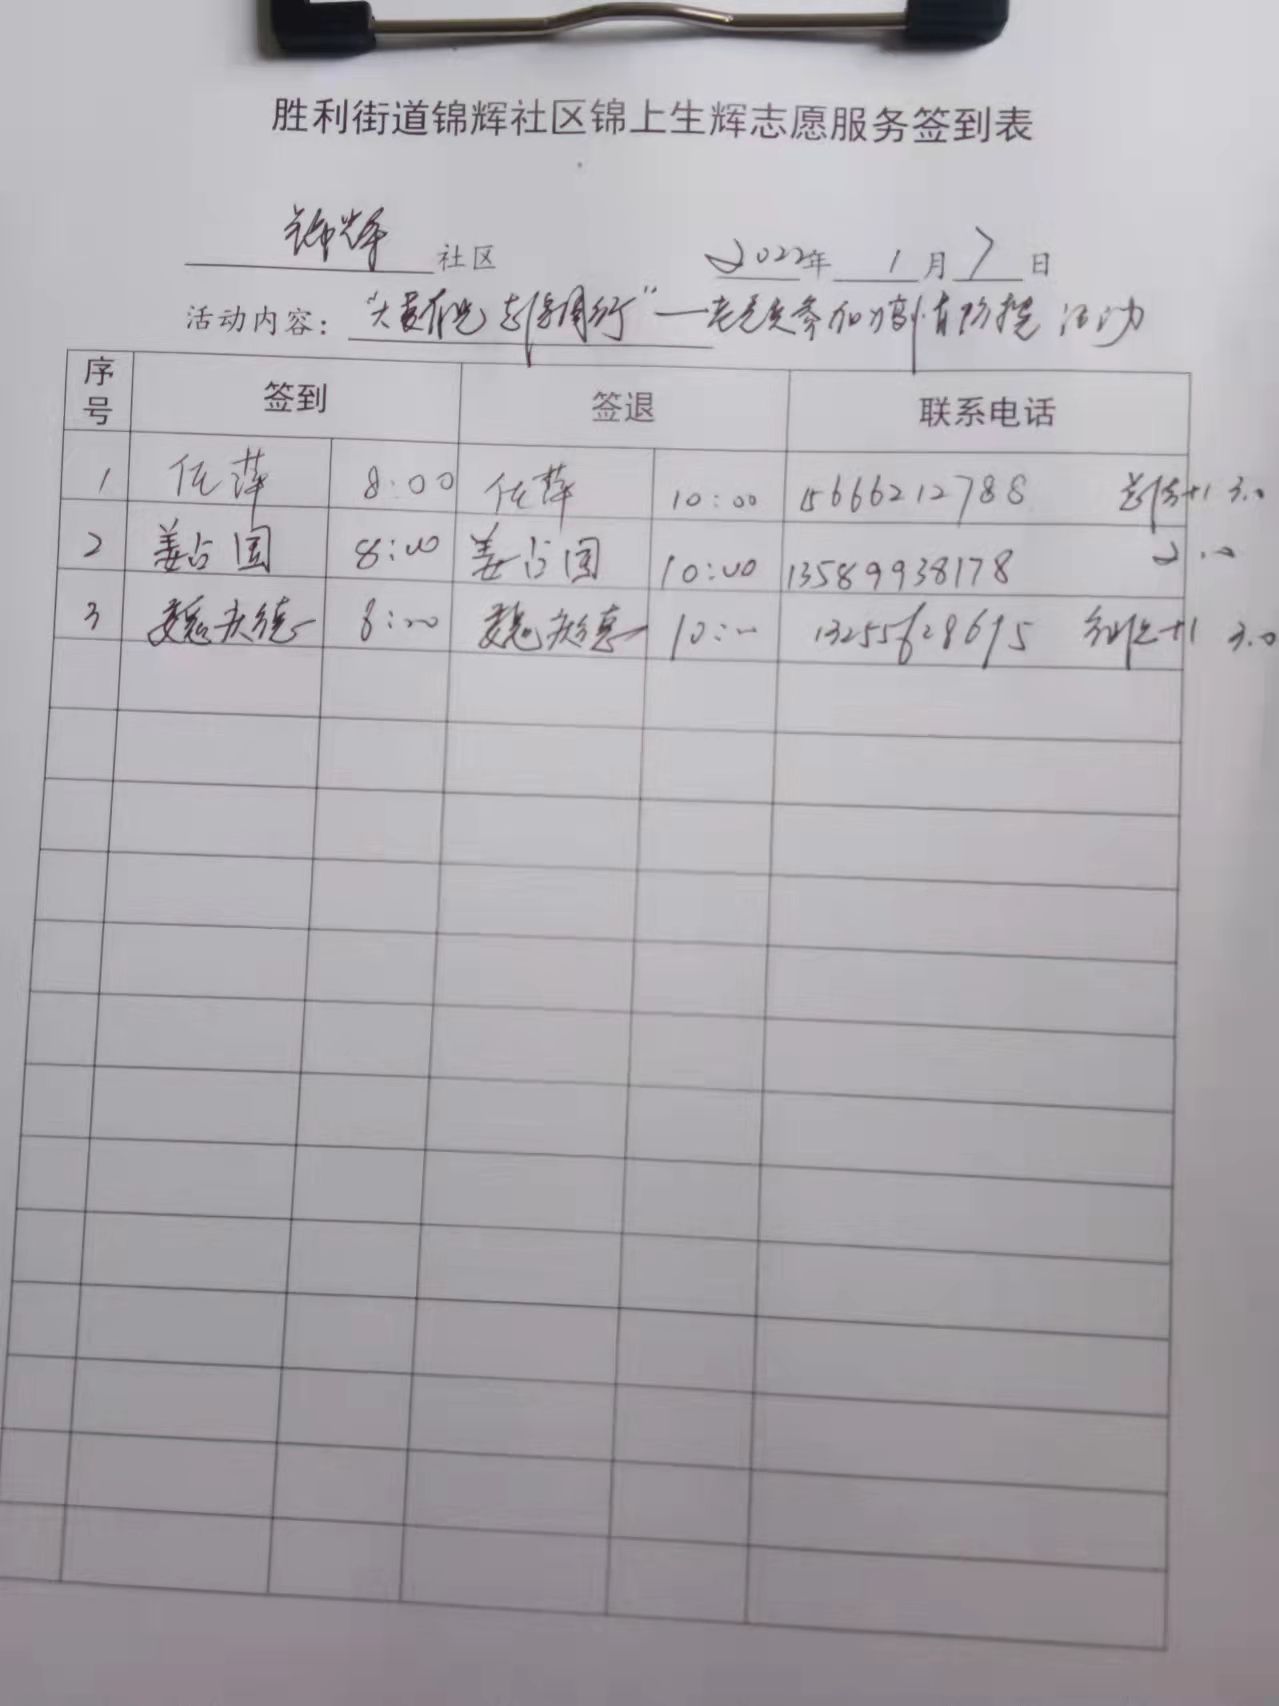 胜利街道锦辉社区锦上生辉志愿服务签到表
锦辉 社区 2022年 1 月 7 日
活动内容：" 同行"—老党员参加疫情防控活动
序号 签到 签退 联系电话
1 任萍 8:00 任萍 10:00 15666212788 +1 3.0
2 姜占国 8:00 姜占国 10:00 13589938178 2.0
3 魏庆德 8:00 魏庆德 10:00 13255628615 +1 3.0